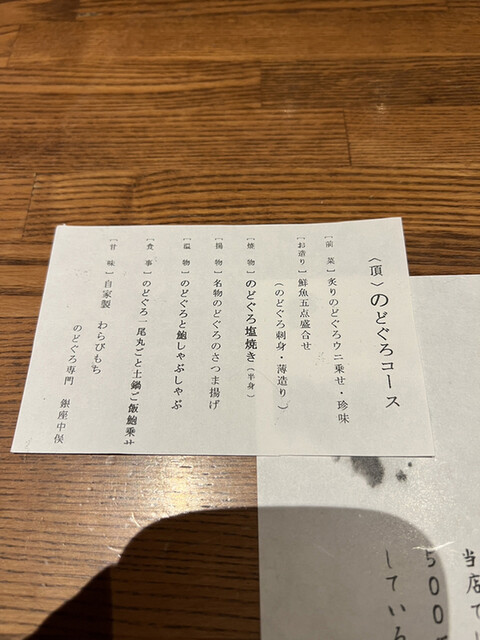 〈頂〉のどぐろコース
［前 菜］炙りのどぐろウニ乗せ・珍味
［お造り］鮮魚五点盛合せ
（のどぐろ刺身・薄造り）
［焼 物］のどぐろ塩焼き（半身）
［揚 物］名物のどぐろのさつま揚げ
［温 物］のどぐろと鮑しゃぶしゃぶ
［食 事］のどぐろ一尾丸ごと土鍋ご飯鮑乗せ
［甘 味］自家製 わらびもち
のどぐろ専門 銀座中俣
当店で
500
している